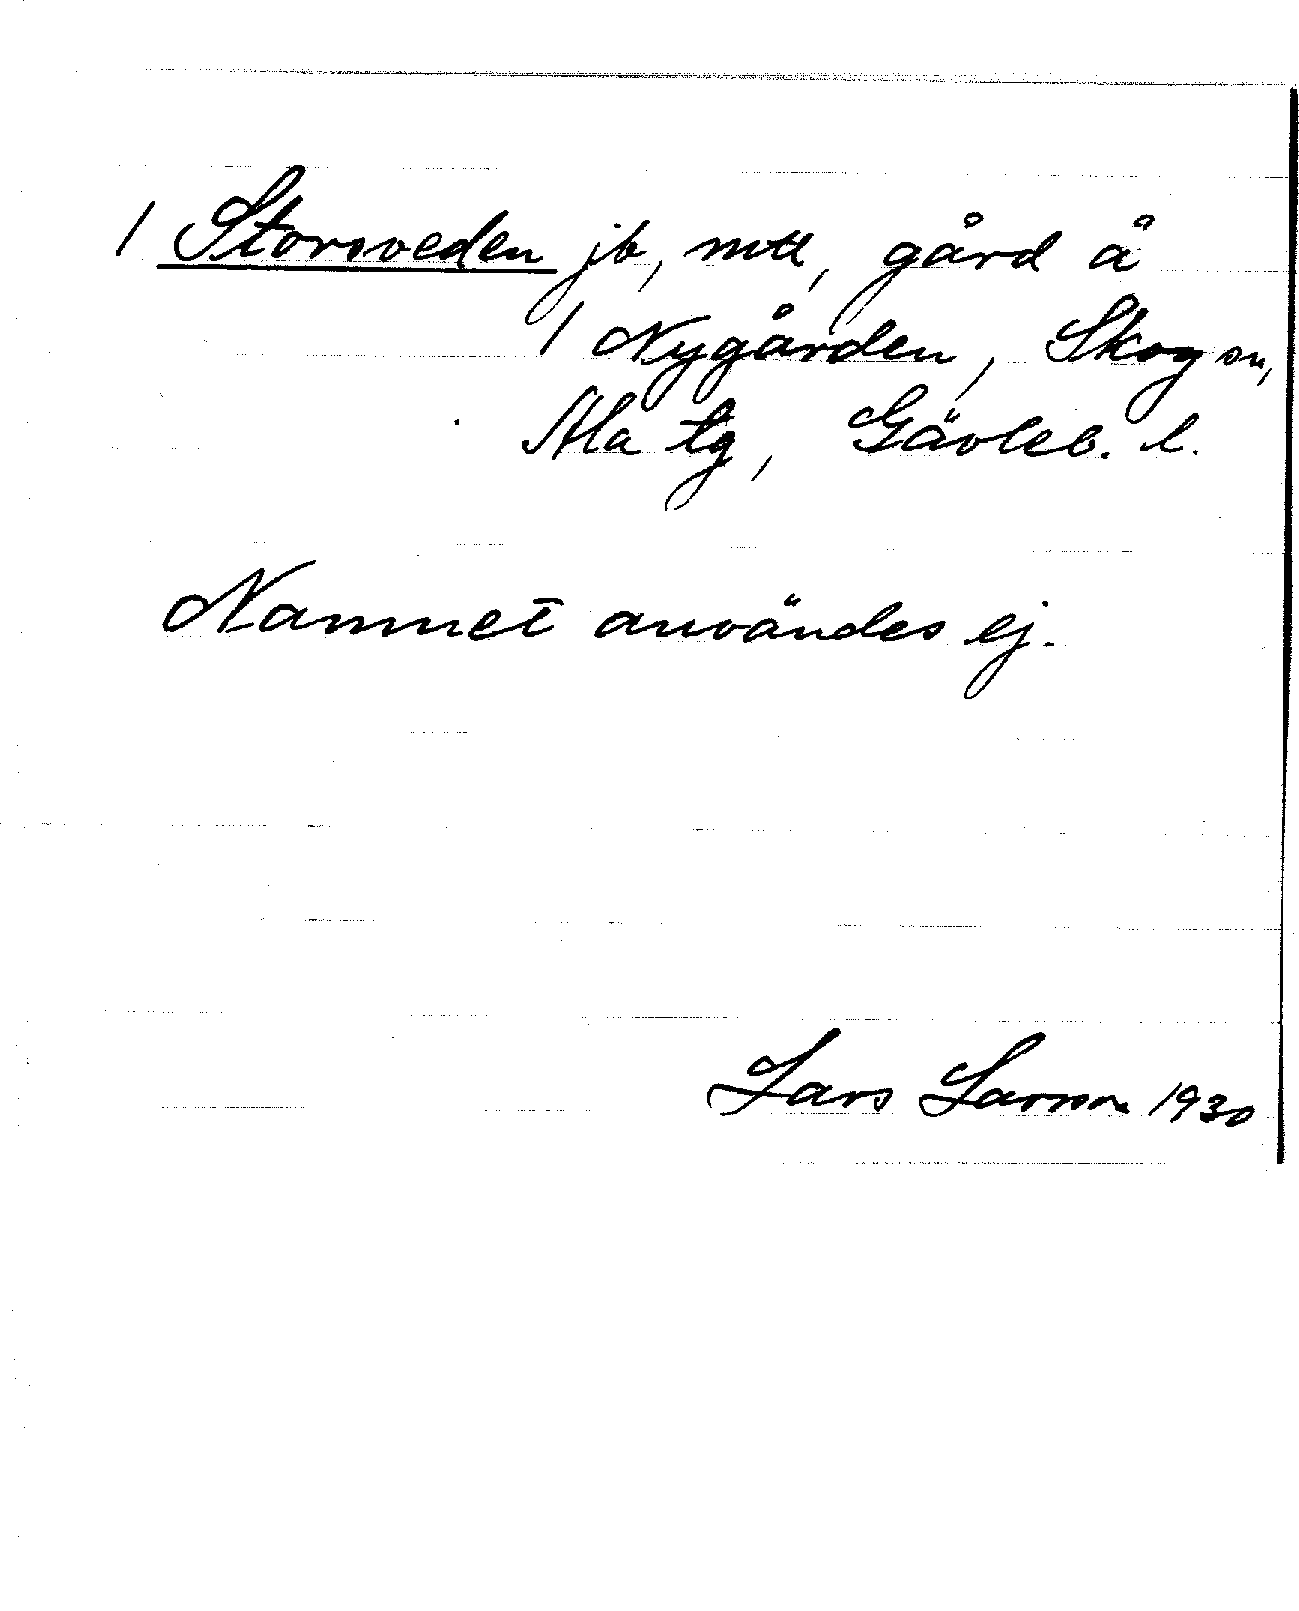 / Storsveden jb, mtl, gård å
/ Nygården, Skog sn,
Ala tg, Gävleb. l.
Namnet användes ej.
Lars Larsson 1930